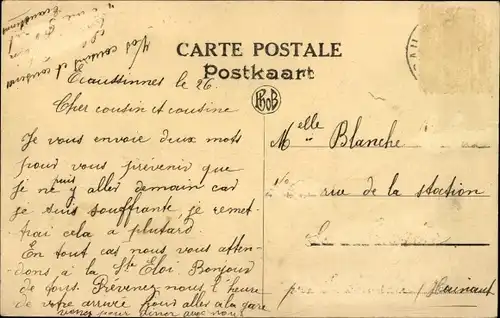 CARTE POSTALE
Postkaart
PhoB
Ecaussinnes le 26
Cher cousin et cousine
Je vous envoie deux mots
pour vous prévenir que
je ne puis y aller demain car
je suis souffrante, je remet-
trai cela a plutard.
En tout cas nous vous atten-
dons à la Ste Eloi. Bonjour
de fous. Prévenez-nous l'heure
de votre arrivée pour aller à la gare
venez pour diner avec nous
Vos cousin et cousine
Ecaussinnes
Melle Blanche
rue de la station
Hainaut